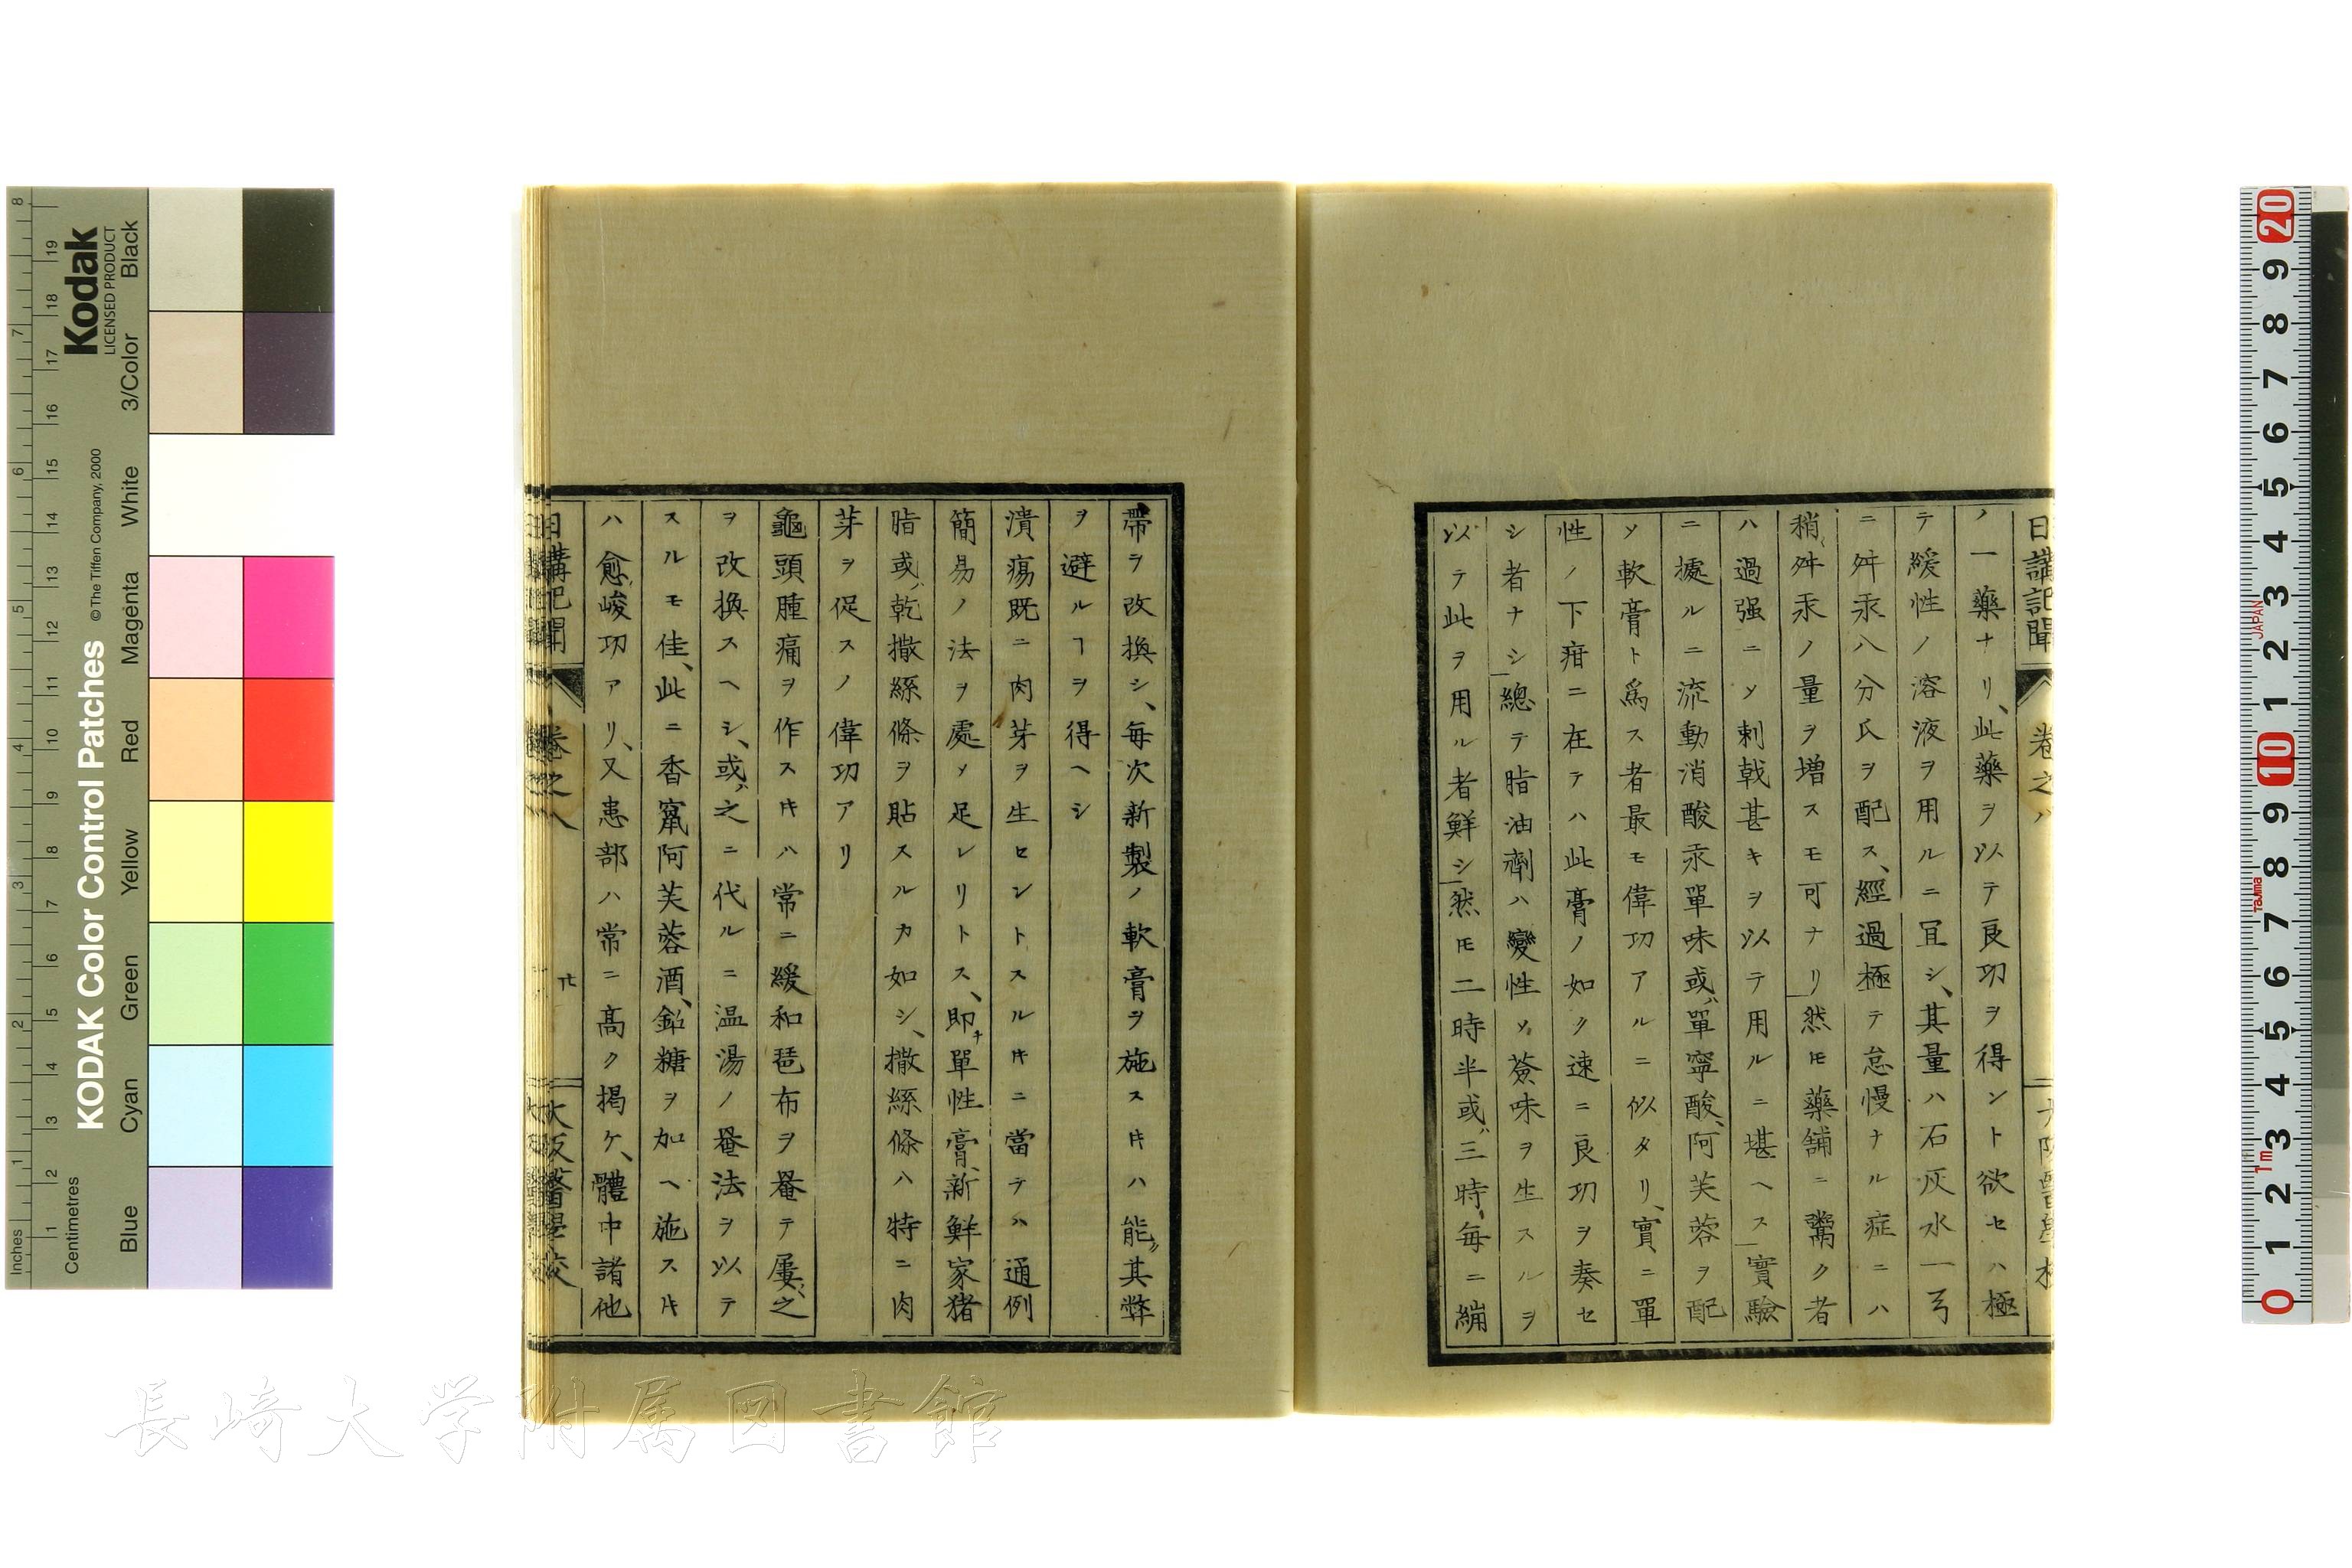 日講記聞 卷之八
ノ一藥ナリ、此藥ヲ以テ良功ヲ得ント欲セハ極
テ緩性ノ溶液ヲ用ルニ冝シ、其量ハ石灰水一弓
ニ舛汞八分氏ヲ配ス、經過極テ怠慢ナル症ニハ
稍舛汞ノ量ヲ増スモ可ナリ然𪜈藥舗ニ鬻ク者
ハ過强ニソ刺戟甚キヲ以テ用ルニ堪ヘス實驗
ニ據ルニ流動消酸汞單味或ハ單寧酸、阿芙蓉ヲ配
ソ軟膏ト爲ス者最モ偉功アルニ似タリ、實ニ單
性ノ下疳ニ在テハ此膏ノ如ク速ニ良功ヲ奏セ
シ者ナシ總テ脂油劑ハ變性ソ薟味ヲ生スルヲ
以テ此ヲ用ル者鮮シ然𪜈二時半或ハ三時毎ニ繃
帶ヲ改換シ、毎次新製ノ軟膏ヲ施スキハ能其弊
ヲ避ルヿヲ得ヘシ
潰瘍既ニ肉芽ヲ生セントスルキニ當テハ通例
簡易ノ法ヲ處ソ足レリトス、即チ單性膏、新鮮家猪
脂或ハ乾撒絲條ヲ貼スルカ如シ、撒絲條ハ特ニ肉
芽ヲ促スノ偉功アリ
龜頭腫痛ヲ作スキハ常ニ緩和琶布ヲ罨テ屢之
ヲ改換スヘシ、或ハ之ニ代ルニ温湯ノ罨法ヲ以テ
スルモ佳、此ニ香竄阿芙蓉酒、鉛糖ヲ加ヘ施スキ
ハ愈峻功アリ、又患部ハ常ニ高ク掲ケ、體中諸他
日講記聞 卷之八 大阪醫學校
Kodak
LICENSED PRODUCT
KODAK Color Control Patches
©The Tiffen Company, 2000
Inches
Centimetres
Blue Cyan Green Yellow Red Magenta White 3/Color Black
JAPAN
Tajima
1m
長崎大学附属図書館